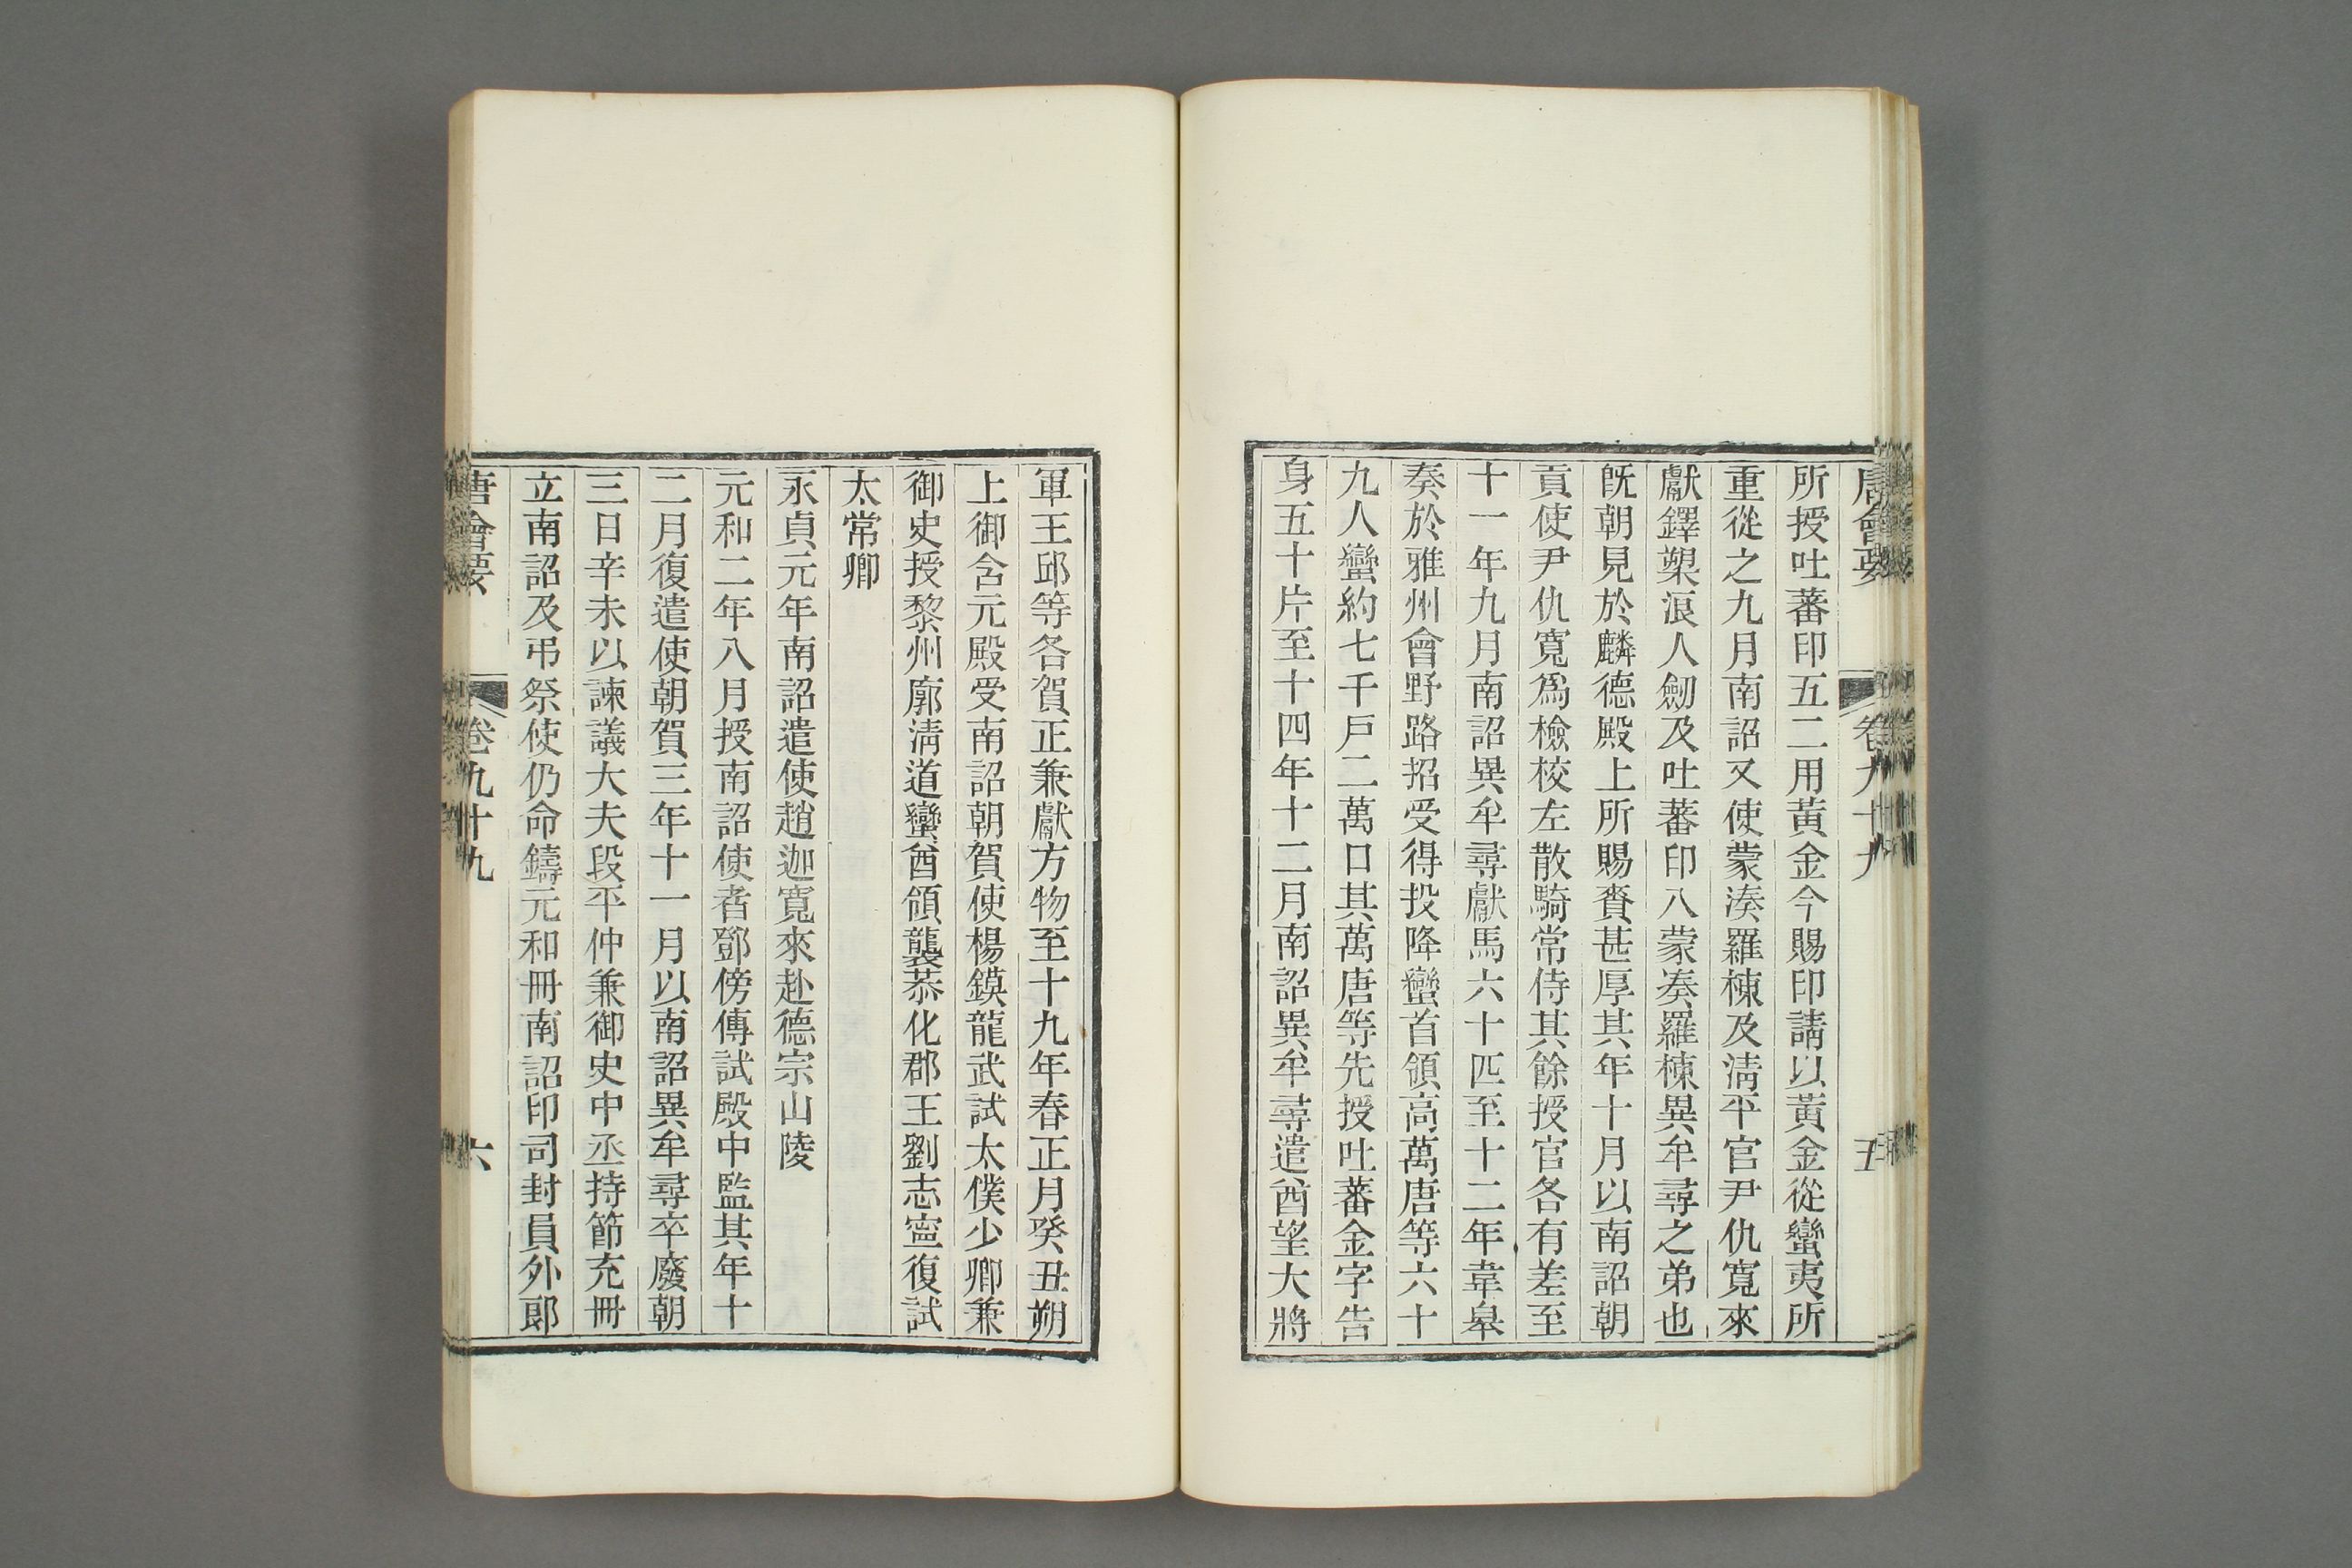 唐會要 卷九十九 五
所授吐蕃印五二用黃金今賜印請以黃金從蠻夷所
重從之九月南詔又使蒙湊羅棟及淸平官尹仇寬來
獻鐸槊浪人劒及吐蕃印八蒙湊羅棟異牟尋之弟也
旣朝見於麟德殿上所賜賚甚厚其年十月以南詔朝
貢使尹仇寬爲檢校左散騎常侍其餘授官各有差至
十一年九月南詔異牟尋獻馬六十匹至十二年韋皋
奏於雅州會野路招受得投降蠻首領高萬唐等六十
九人蠻約七千戶二萬口其萬唐等先授吐蕃金字告
身五十片至十四年十二月南詔異牟尋遣酋望大將
軍王邱等各賀正兼獻方物至十九年春正月癸丑朔
上御含元殿受南詔朝賀使楊鏌龍武試太僕少卿兼
御史授黎州廓淸道蠻酋領襲恭化郡王劉志寍復試
太常卿
永貞元年南詔遣使趙迦寬來赴德宗山陵
元和二年八月授南詔使者鄧傍傳試殿中監其年十
二月復遣使朝賀三年十一月以南詔異牟尋卒廢朝
三日辛未以諫議大夫段平仲兼御史中丞持節充冊
立南詔及弔祭使仍命鑄元和冊南詔印司封員外郎
唐會要 卷九十九 六